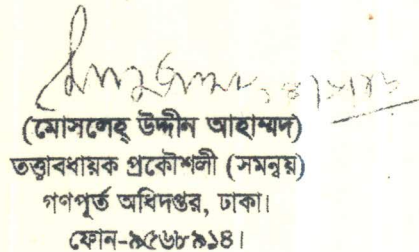 (মোসলেহ্ উদ্দীন আহাম্মদ)
তত্ত্বাবধায়ক প্রকৌশলী (সমন্বয়)
গণপূর্ত অধিদপ্তর, ঢাকা।
ফোন-৯৫৬৮৯১৪।